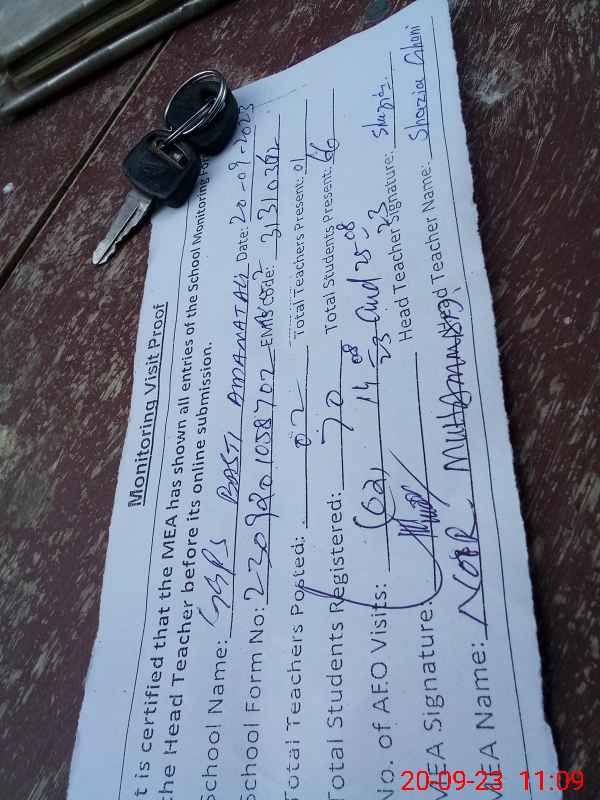 Monitoring Visit Proof
t is certified that the MEA has shown all entries of the School Monitoring For
the Head Teacher before its online submission.
School Name: GGPS BASTI AMANAT ALI Date: 20-09-2023
School Form No: EMIS Code: 31310362
Total Teachers Posted: 02 Total Teachers Present: 01
Total Students Registered: 70 Total Students Present: 66
No. of AEO Visits: (02) 14-08-23 and 25-08-23 Head Teacher Signature: Shazia
MEA Signature: Head Teacher Name: Shazia Ghani
MEA Name: NOOR MUHAMMAD
20-09-23 11:09